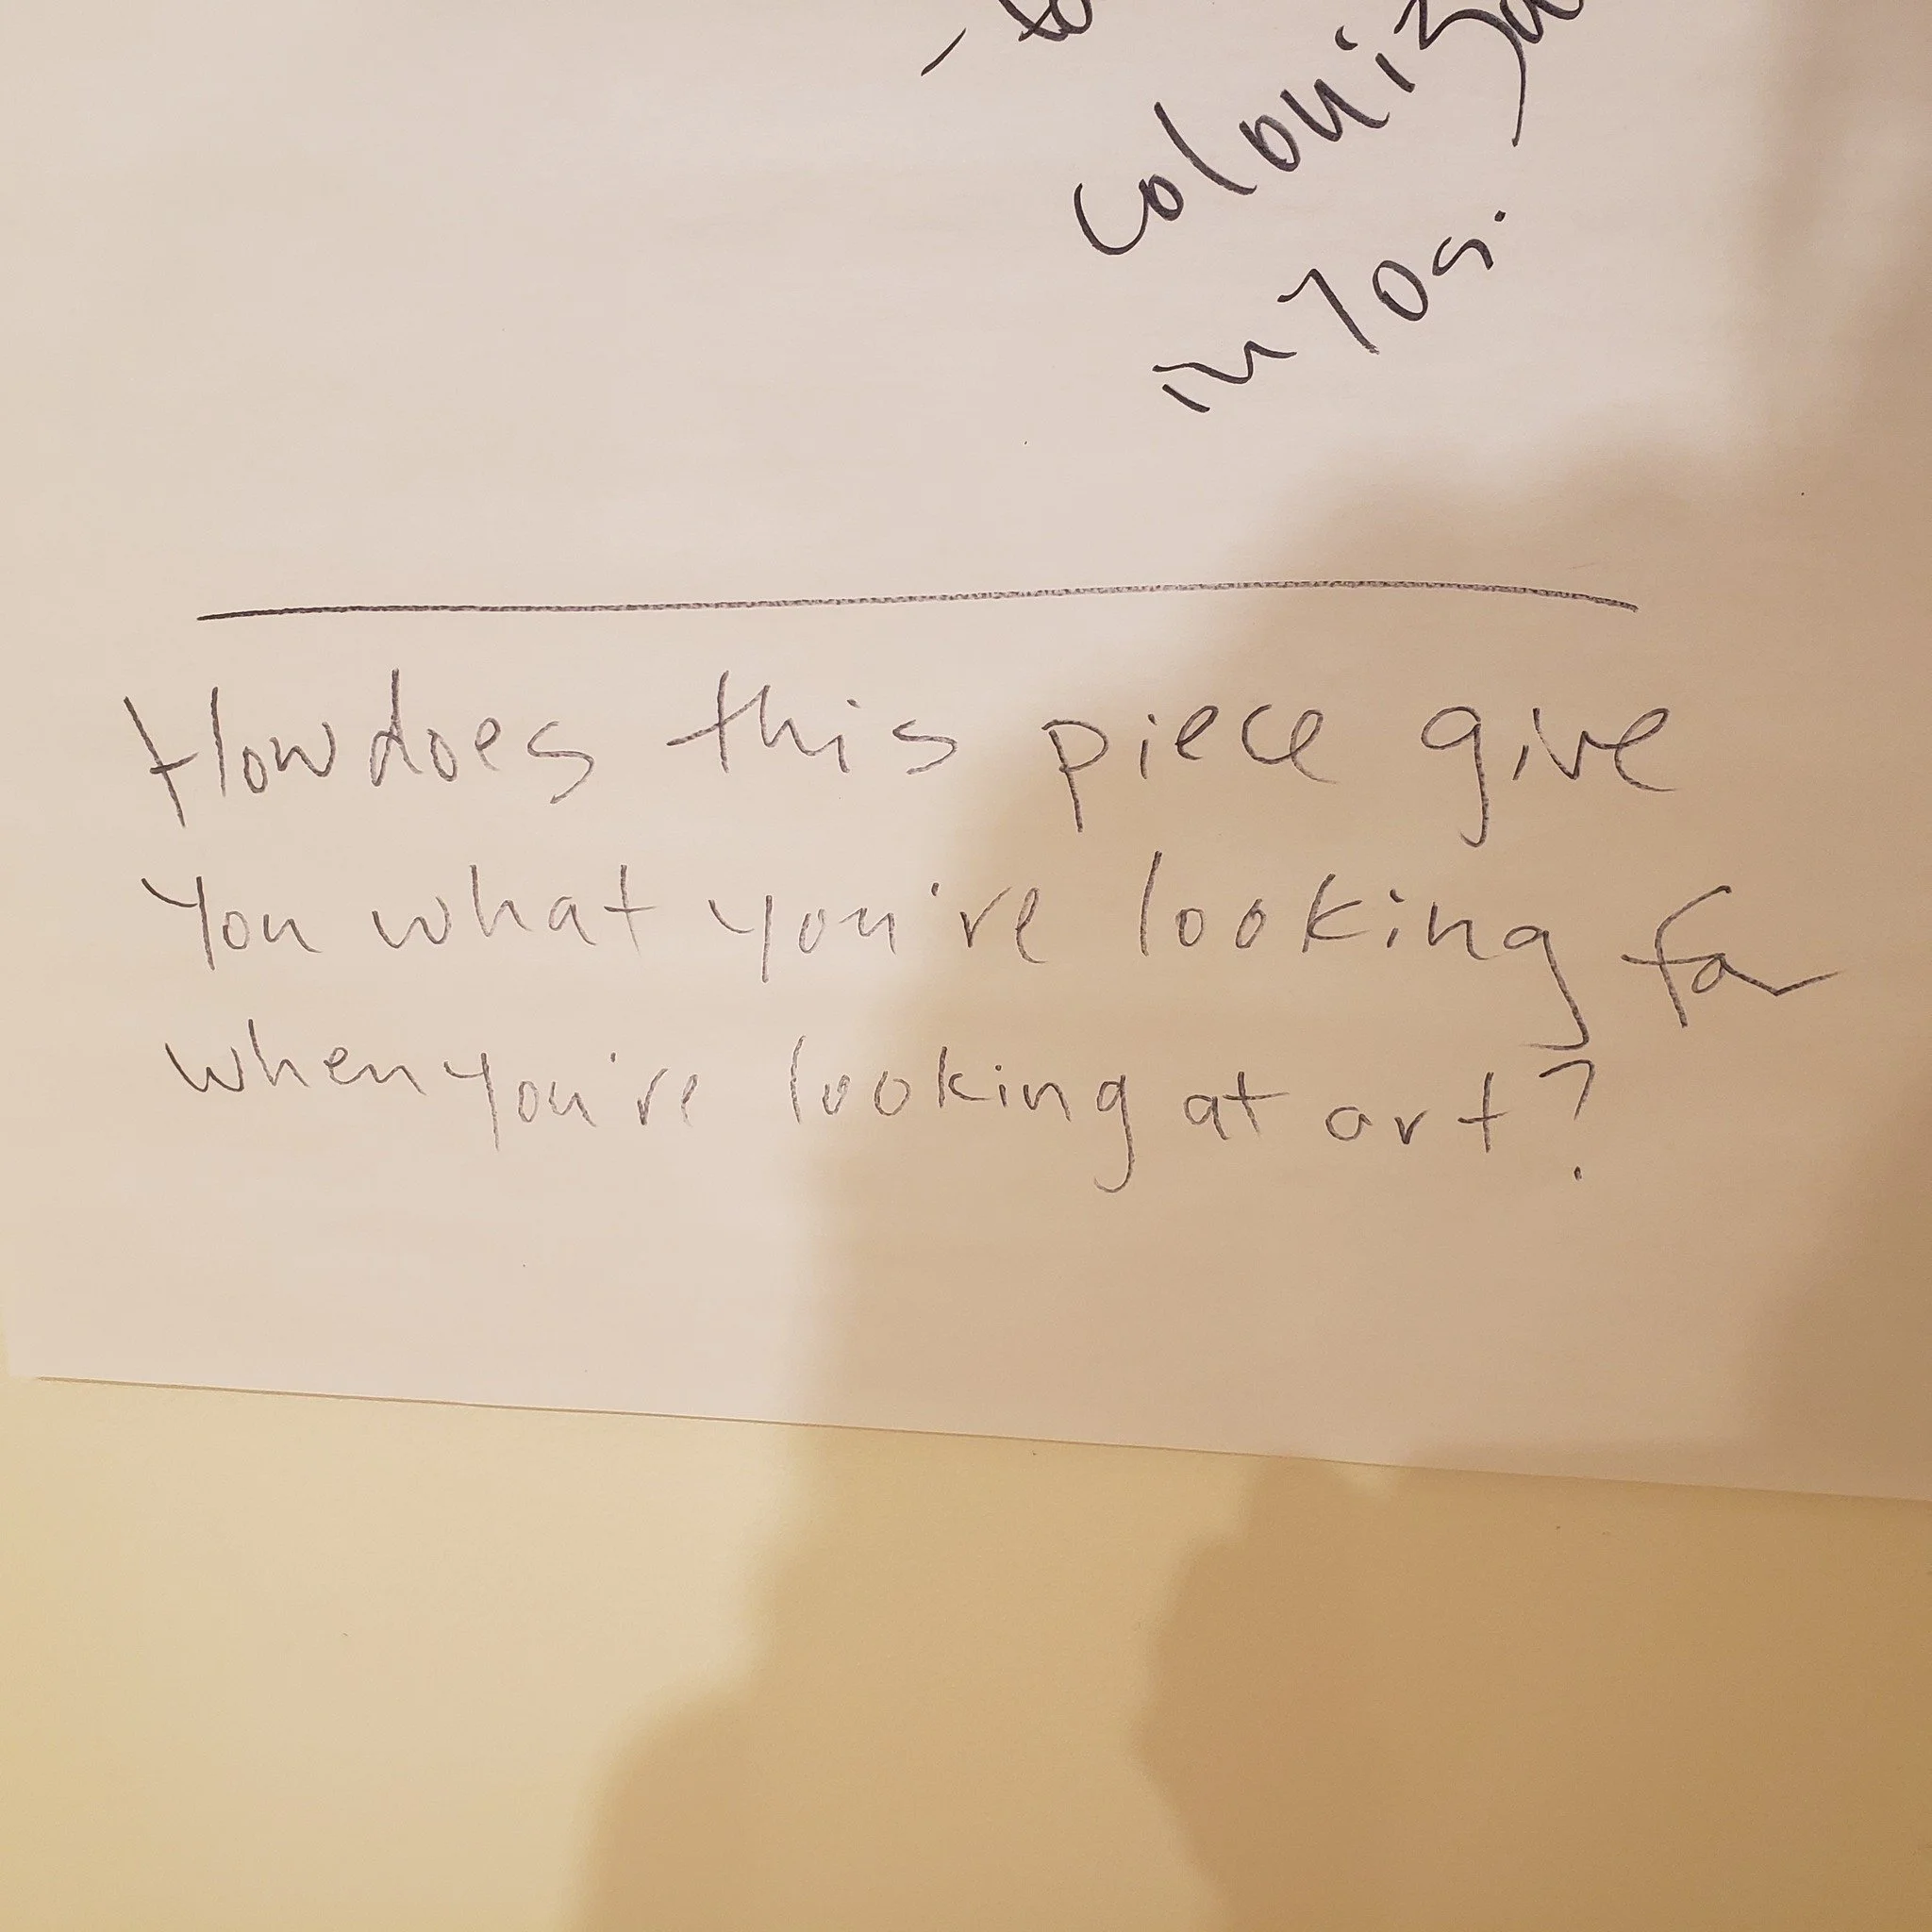 How does this piece give
you what you're looking for
when you're looking at art?